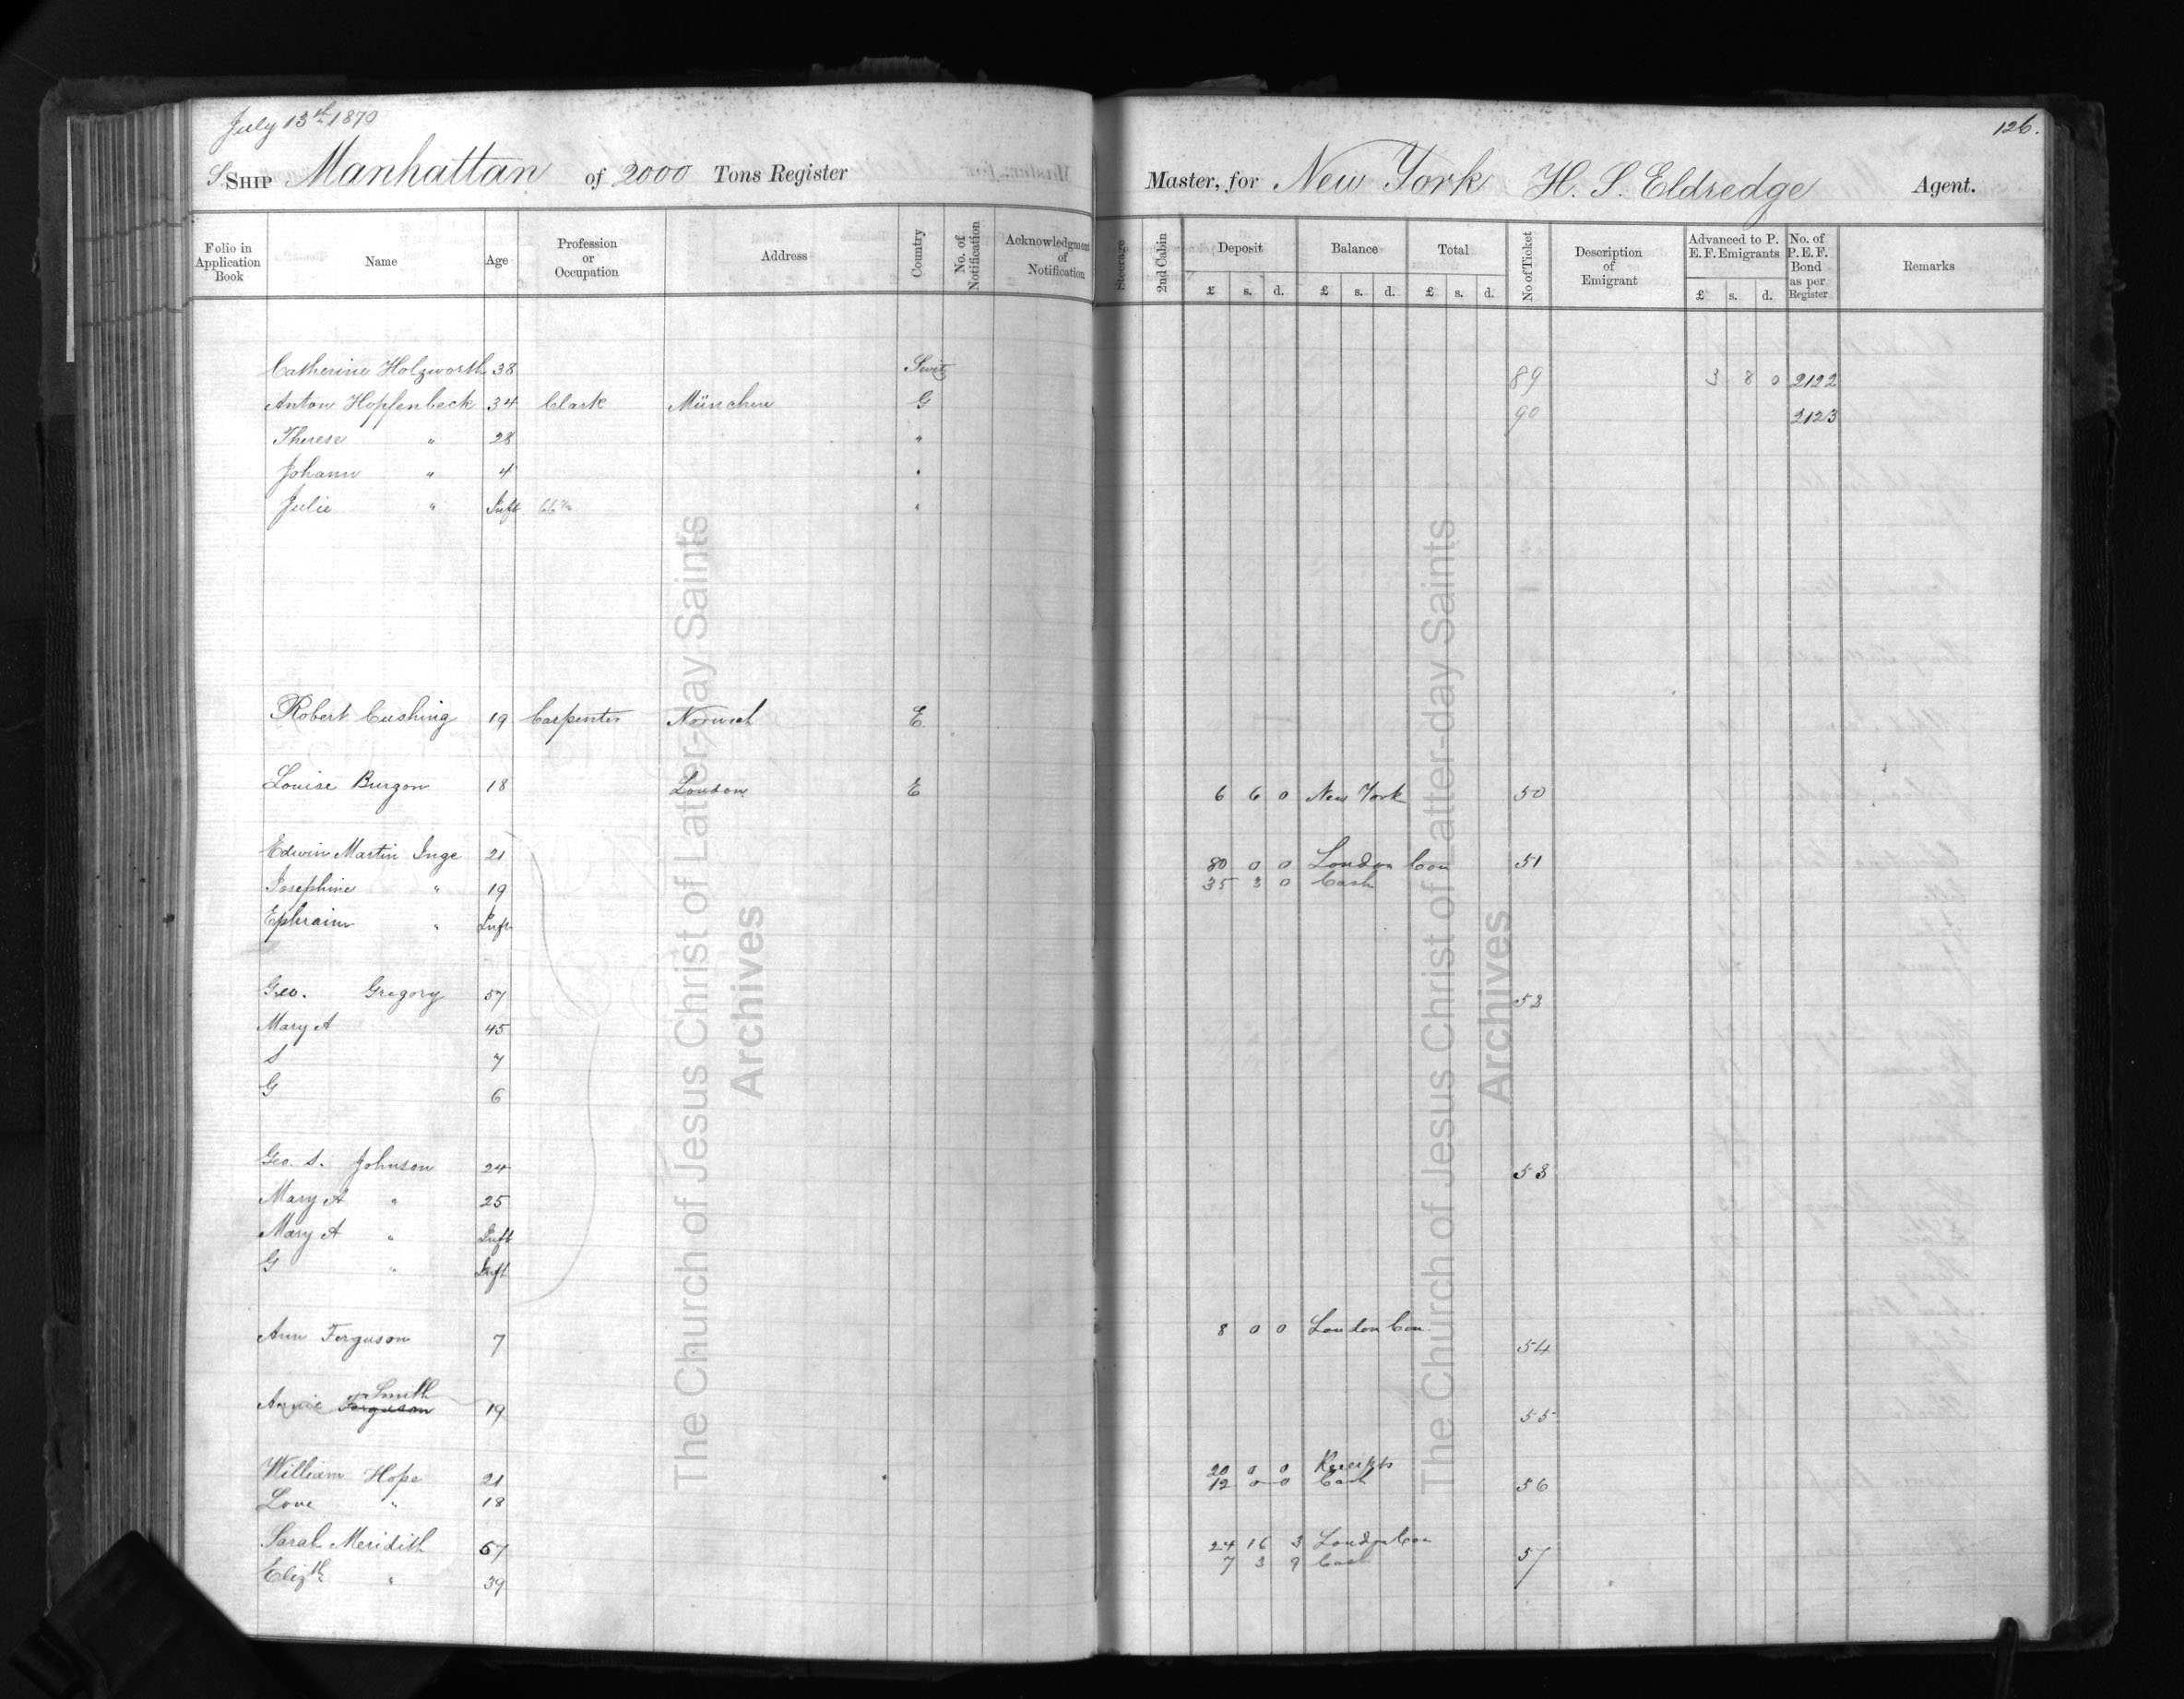 July 13th 1870
126.
S. SHIP Manhattan of 2000 Tons Register Master, for New York H. S. Eldredge Agent.
Folio in Application Book Name Age Profession or Occupation Address Country No. of Notification Acknowledgment of Notification Steerage 2nd Cabin Deposit Balance Total No of Ticket Description of Emigrant Advanced to P. E. F. Emigrants No. of P. E. F. Bond as per Register Remarks
£ s. d. £ s. d. £ s. d. £ s. d.
Catherine Holzworth 38 Switz 89 3 8 0 2122
Anton Hopfenbeck 34 Clark München G 90 2123
Therese " 28 "
Johann " 4 "
Julie " Inft "
Robert Cushing 19 Carpenter Norwich E
Louise Burgon 18 London E 6 6 0 New York 50
Edwin Martin Inge 21 80 0 0 London Con 51
Josephine " 19 35 3 0 Cash
Ephraim " Inft
Geo. Gregory 57 52
Mary A 45
S 7
G 6
Geo. S. Johnson 24 53
Mary A " 25
Mary A " Inft
G " Inft
Ann Ferguson 7 8 0 0 London Con. 54
Annie Ferguson Smith 19 55
William Hope 21 20 0 0 Receipts 56
Love " 18 12 0 0 Cash
Sarah Meridith 67 24 16 3 London Con 57
Elizth " 39 7 3 9 Cash
The Church of Jesus Christ of Latter-day Saints
Archives
The Church of Jesus Christ of Latter-day Saints
Archives